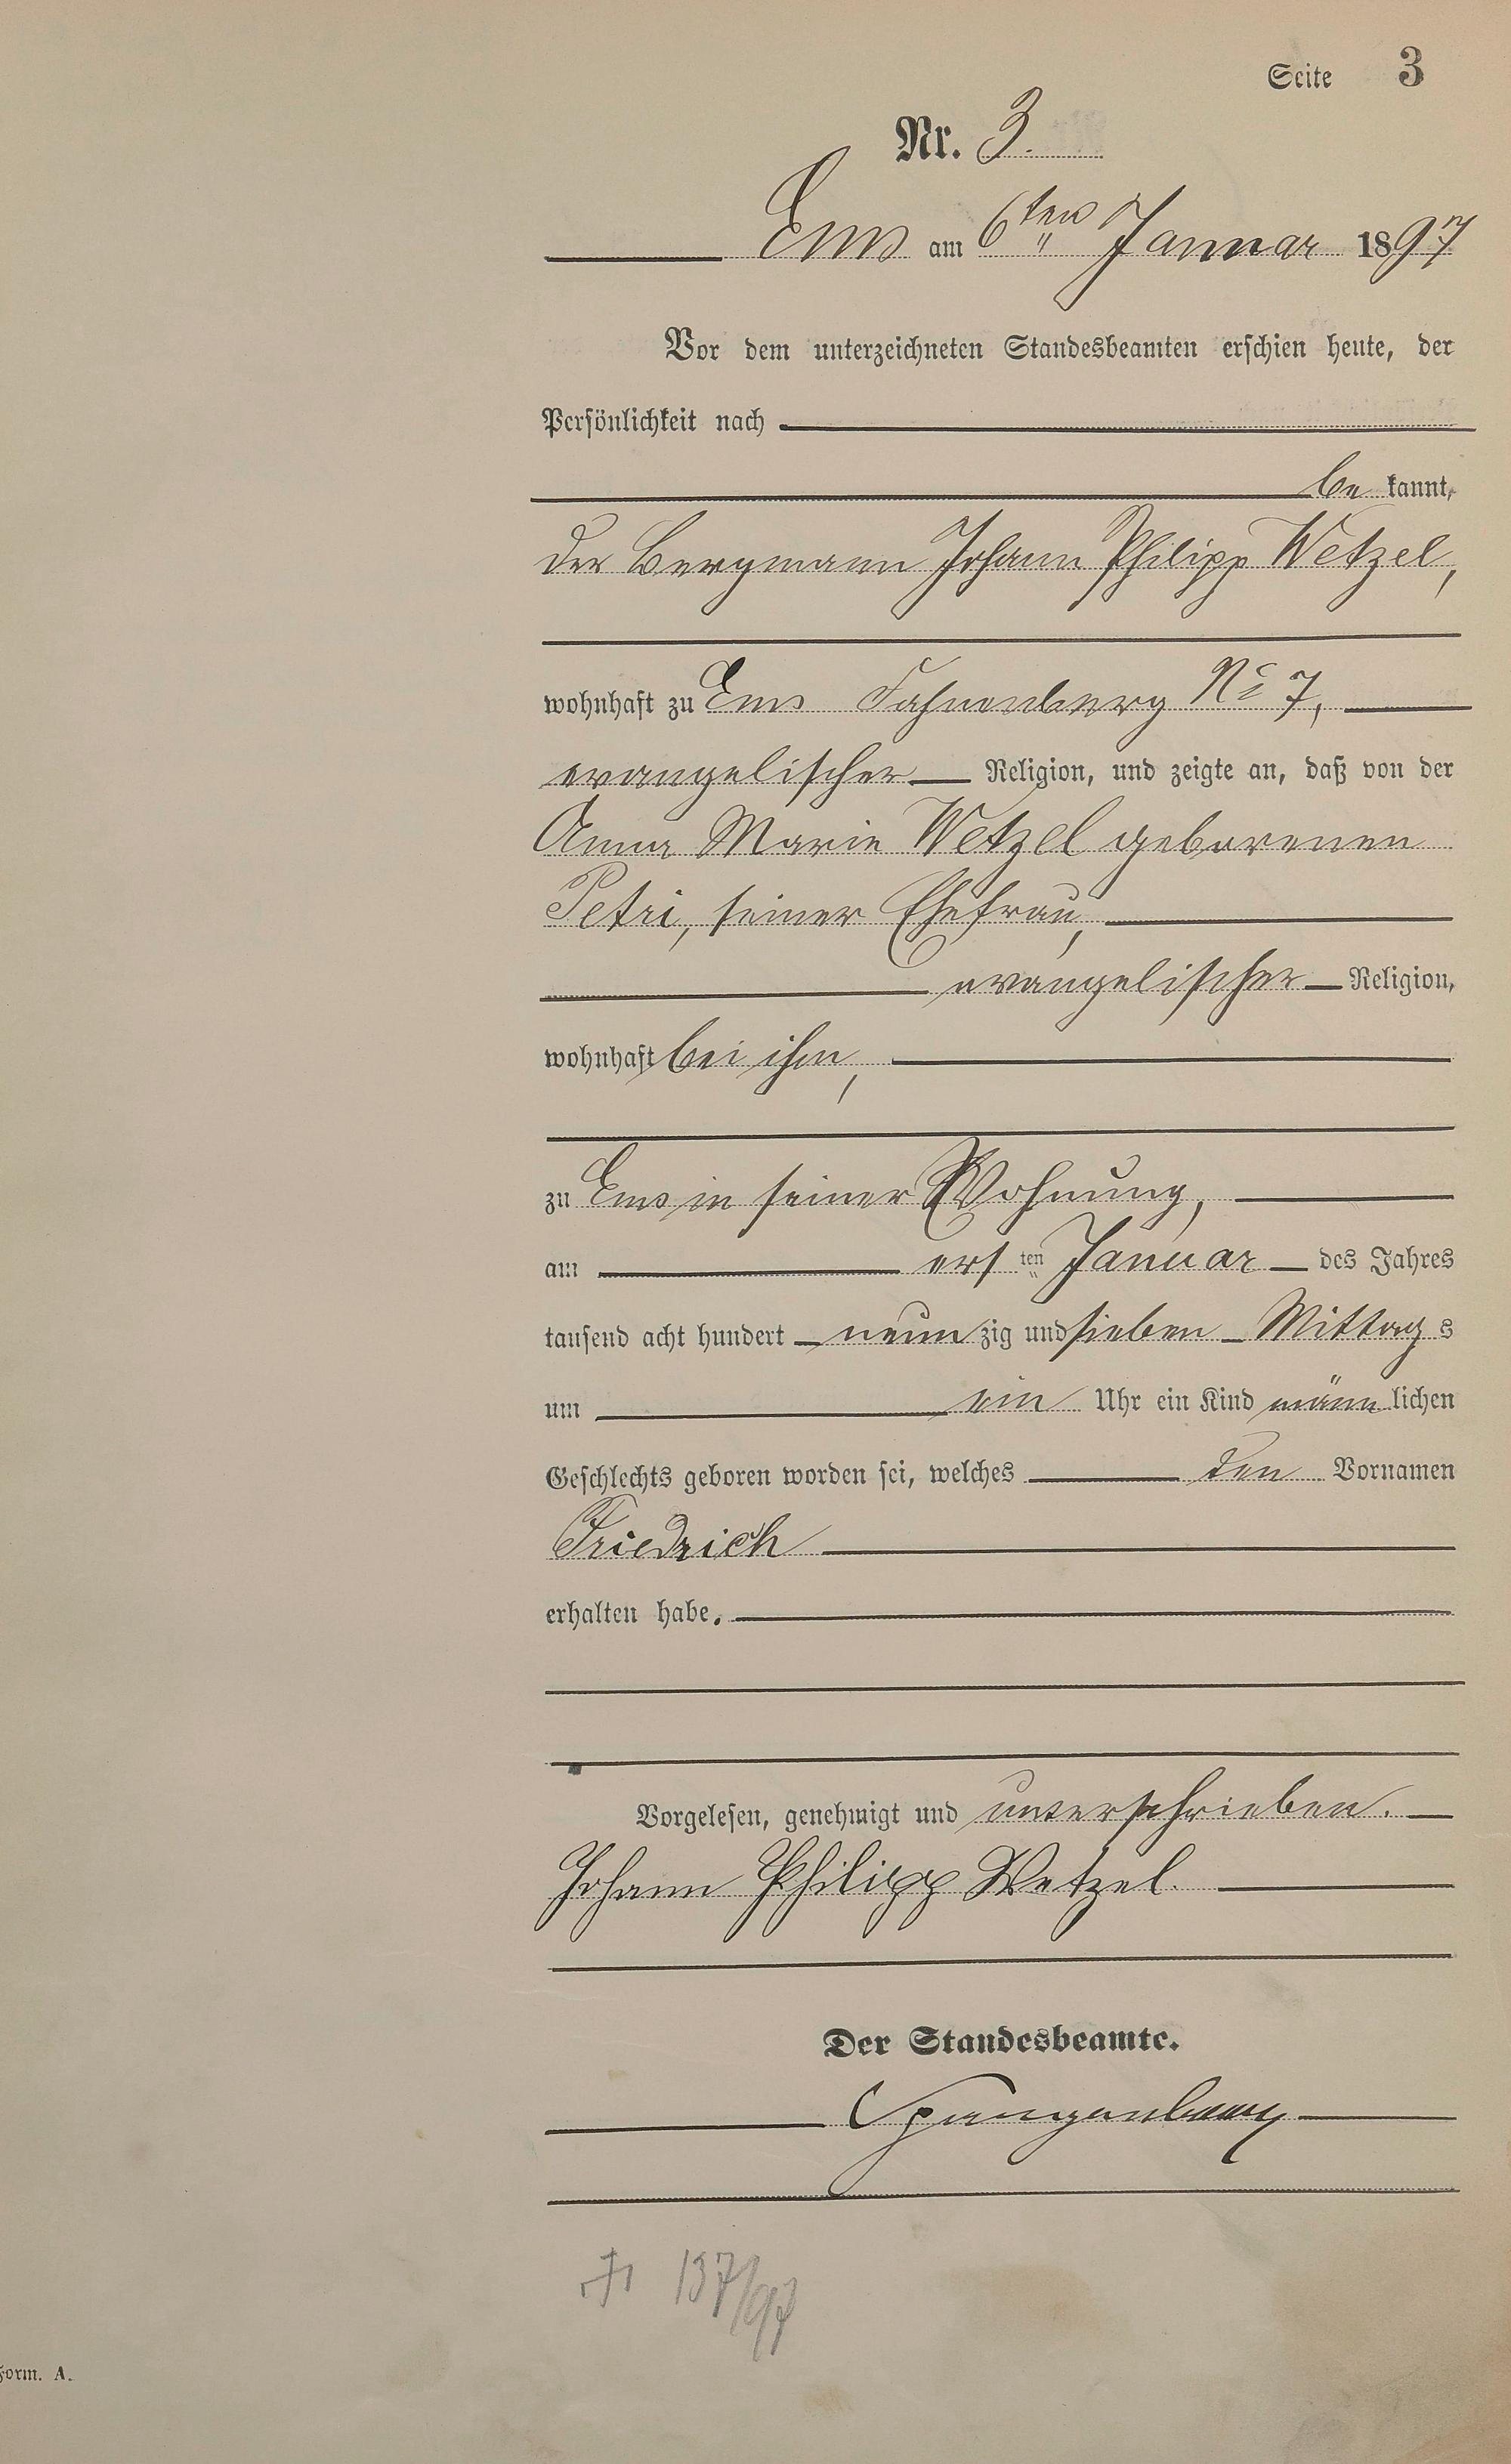 Seite 3
Nr. 3.
Ems am 6ten Januar 1897
Vor dem unterzeichneten Standesbeamten erschien heute, der
Persönlichkeit nach
be kannt,
der Bergmann Johann Philipp Wetzel,
wohnhaft zu Ems Fahnenberg No 7,
evangelischer Religion, und zeigte an, daß von der
Anna Marie Wetzel geborenen
Petri, seiner Ehefrau,
evangelischer Religion,
wohnhaft bei ihm,
zu Ems in seiner Wohnung,
am ersten Januar des Jahres
tausend acht hundert neun zig und sieben Mittag s
um ein Uhr ein Kind männ lichen
Geschlechts geboren worden sei, welches den Vornamen
Friedrich
erhalten habe.
Vorgelesen, genehmigt und unterschrieben.
Johann Philipp Wetzel.
Der Standesbeamte.
Spangenberg
137/97
Form. A.